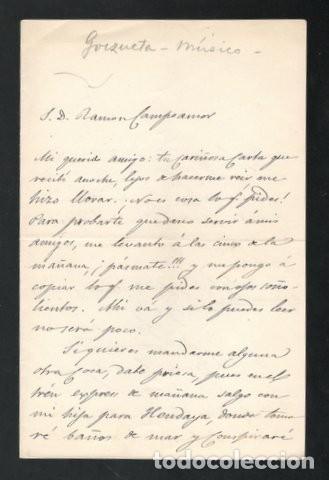 Goizueta – Músico –
S. D. Ramon Campoamor
Mi querido amigo: tu cariñosa carta que
recibí anoche, lejos de hacerme reir me
hizo llorar. ¡No es cosa lo q.e pides!
Para probarte que deseo servir á mis
amigos, me levanto á las cinco de la
mañana, ¡pásmate!!! y me pongo á
copiar lo q.e me pides con ojos soño-
lientos. Ahi vá y si lo puedes leer
no será poco.
Si quieres mandarme alguna
otra cosa, date priesa, pues en el
trén express de mañana salgo con
mi hija para Hendaya, donde toma-
ré baños de mar y conspiraré
todocoleccion.net